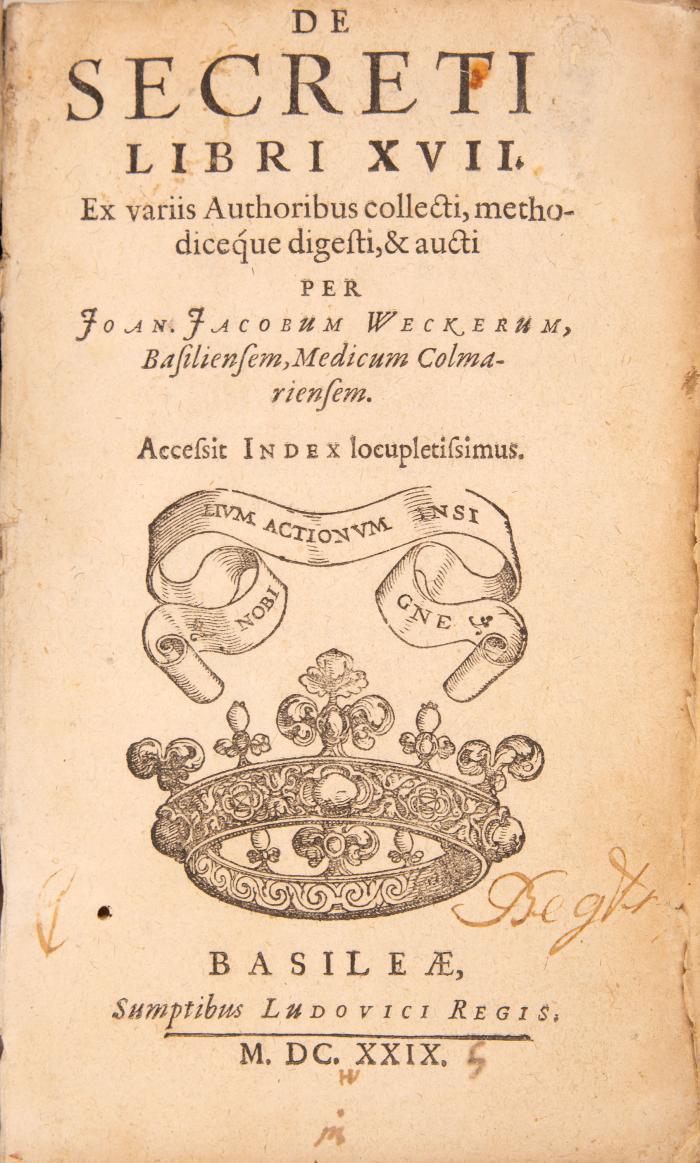 DE
SECRETI
LIBRI XVII.
Ex variis Authoribus collecti, metho-
diceq́ue digeſti, & aucti
PER
JOAN. JACOBUM WECKERUM,
Baſilienſem, Medicum Colma-
rienſem.
Acceſsit INDEX locupletiſsimus.
NOBI
LIVM ACTIONVM INSI
GNE
BASILEÆ,
Sumptibus LUDOVICI REGIS.
M. DC. XXIX.